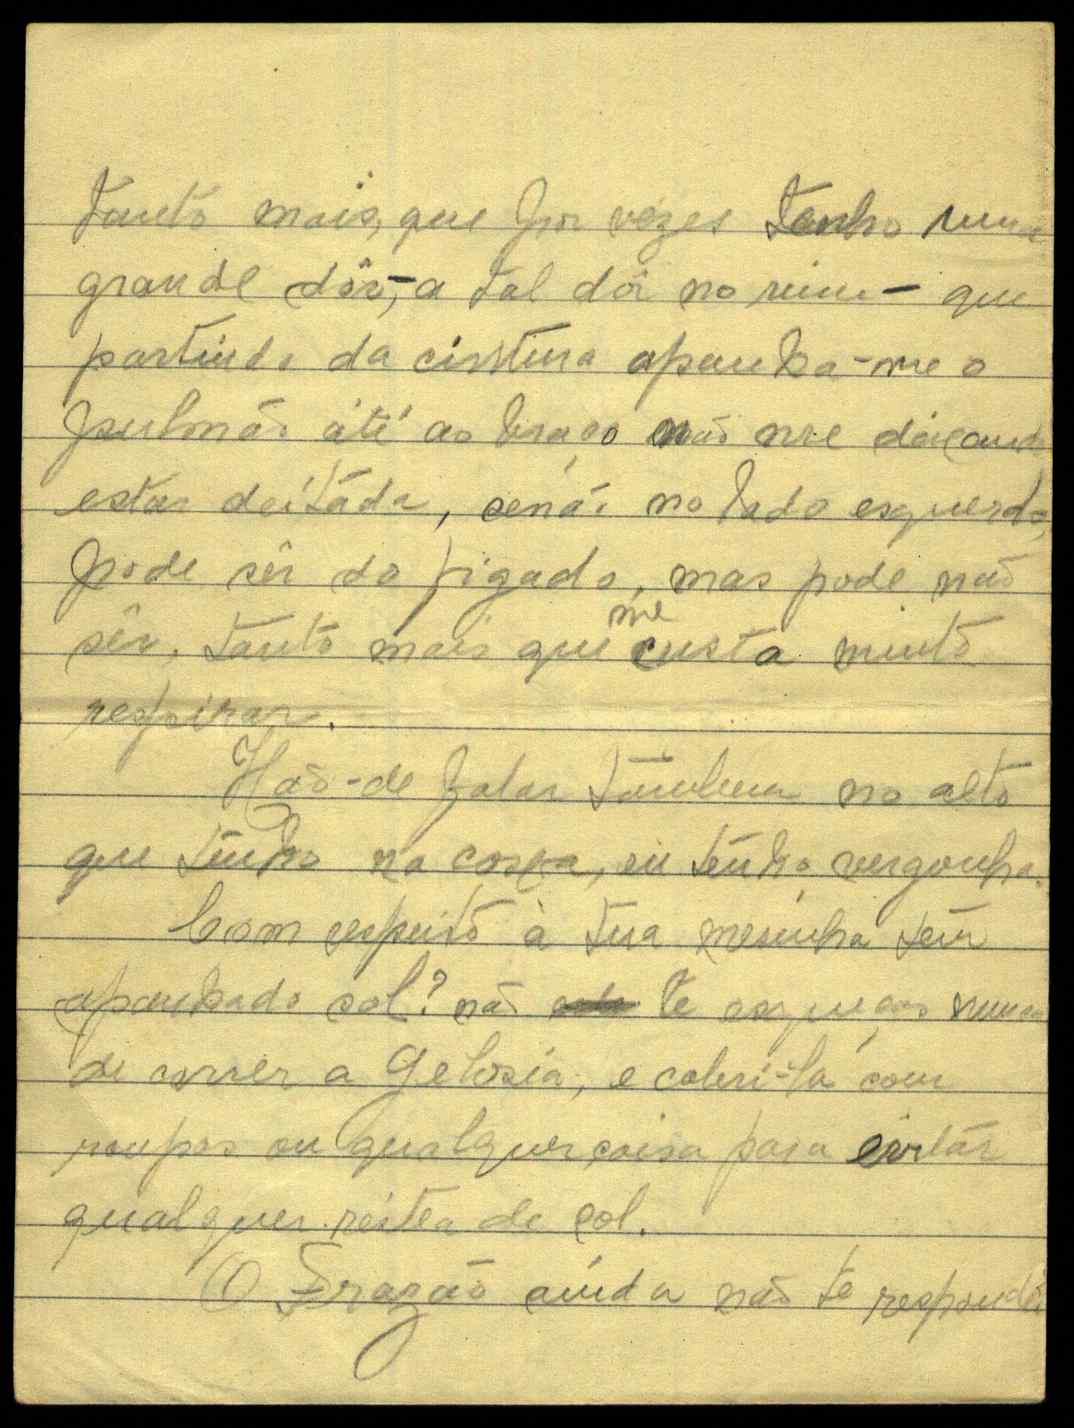 tanto mais, que por vezes tenho uma
grande dôr, - a tal dôr no rim - que
partindo da cintura apanha-me o
pulmão até ao braço não me deixando
estar deitáda, senão no lado esquerdo,
pode sêr do figado, mas pode não
sêr, tanto mais que me custa muito
respirar.
Hão-de falar tambem no alto
que tenho na coxa, eu tenho vergonha.
Com respeito à tua mesinha tem
apanhado sol? não te esqueças nunca
de correr a Gelosia, e cobri-la com
roupas ou qualquer coisa para evitár
qualquer restea de sol.
O Frazão ainda não te respondêu